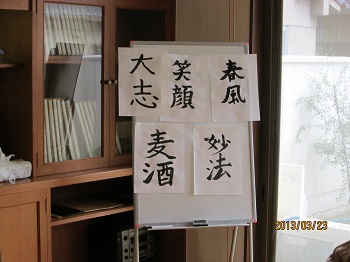 春風
笑顔
大志
妙法
麦酒
2013/03/23